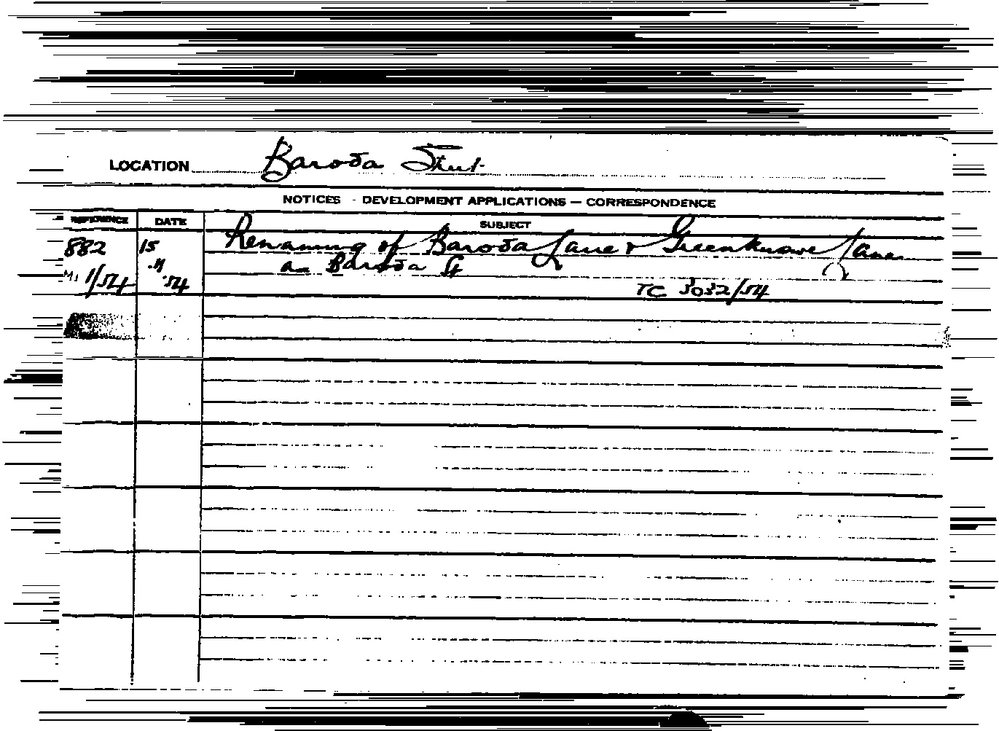 LOCATION Baroda Street
NOTICES - DEVELOPMENT APPLICATIONS — CORRESPONDENCE
REFERENCE DATE SUBJECT
882 15 Renaming of Baroda Lane & Greenknowe Lane
as Baroda St
1/54 '54 TC 3032/54